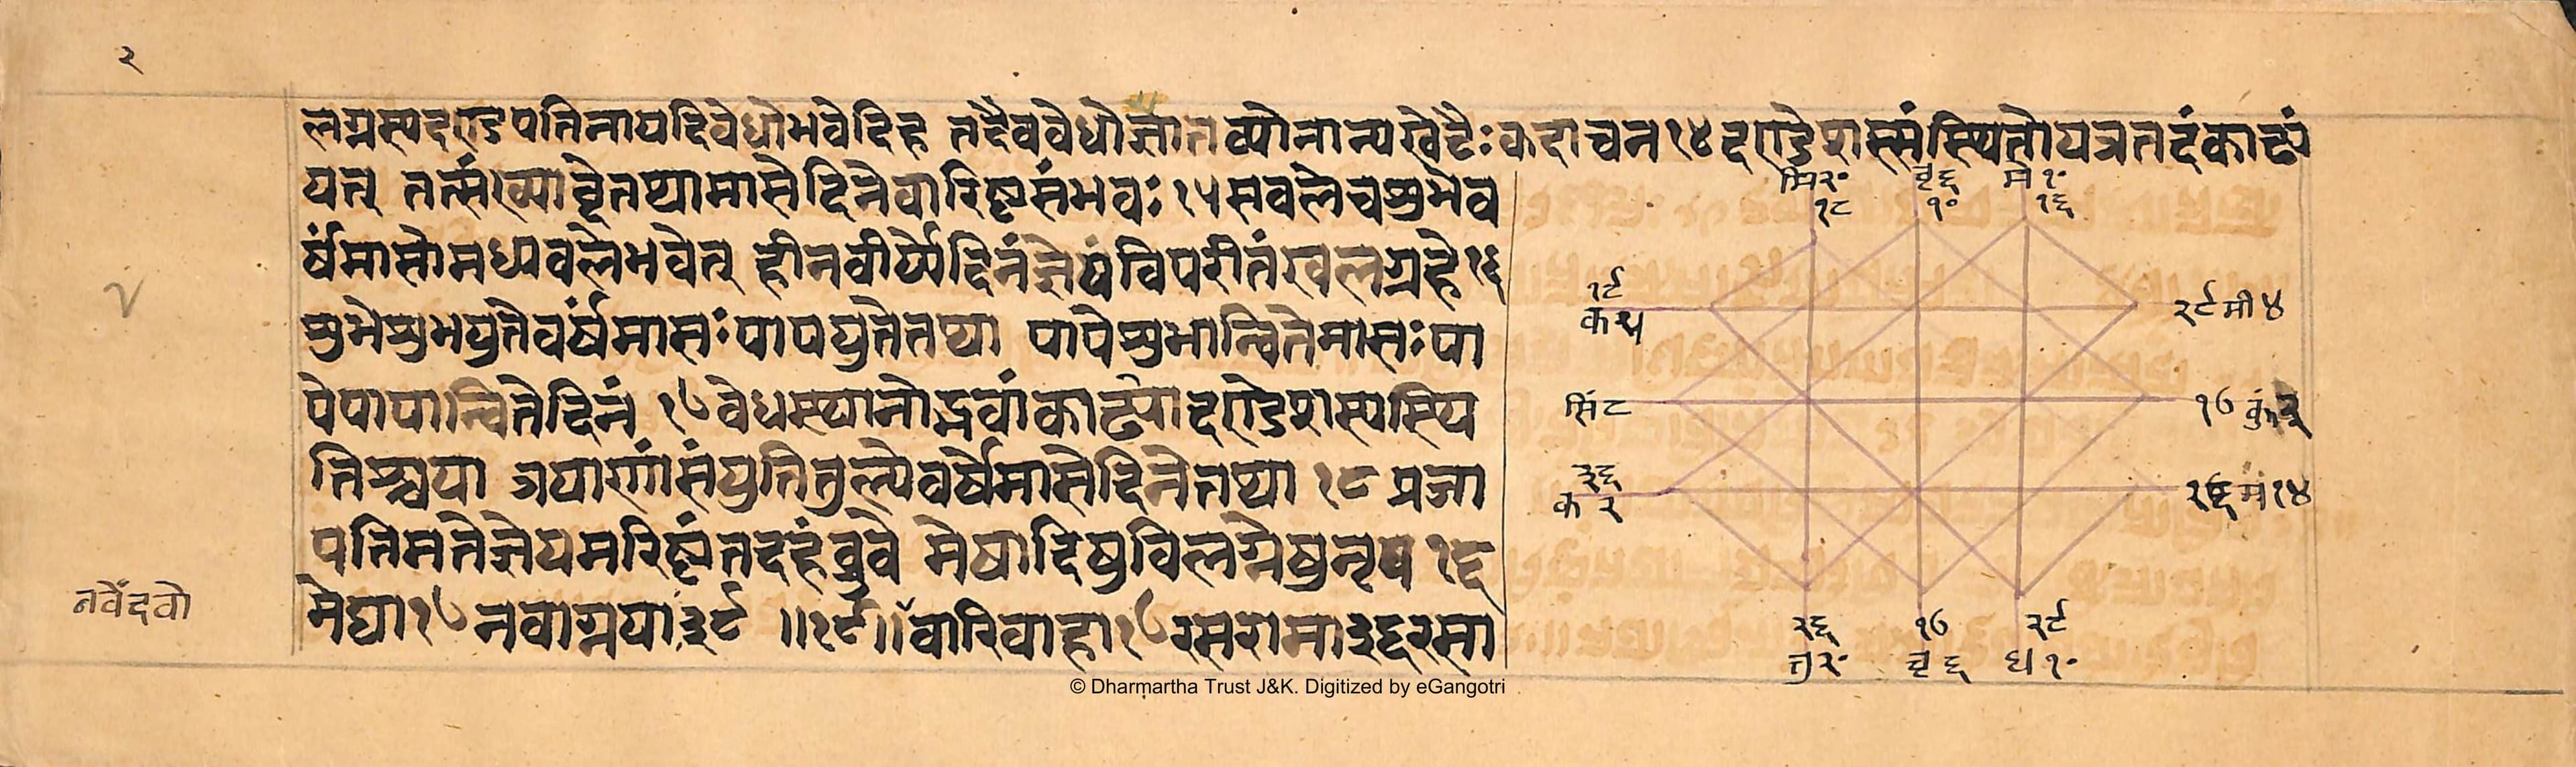 २
लग्नस्पदण्डपतिनायदिवेधोभवेदिह तदैववेधोज्ञातव्योनान्यखेटैःकदाचन१४दण्डेशस्संस्थितोयत्रतदंकाढ्यं
यत् तत्संख्याब्देतथामासेदिनेवारिष्टसंभवः१५सबलेचशुभेव
र्षंमासोमध्यबलेभवेत् हीनवीर्यैदिनंज्ञेयंविपरीतंखलग्रहे१६
शुभेशुभयुतेवर्षंमासःपापयुतेतथा पापेशुभान्वितेमासःपा
पेपापान्वितेदिनं १७वेधस्थानोद्भवांकाढ्यादण्डेशस्यस्थि
तिश्चया त्रयाणांसंयुतितुल्येवर्षेमासेदिनेतथा १८ प्रजा
पतिमतेज्ञेयमरिष्टंतदहंब्रुवे मेषादिषुविलग्नेषुनृप १६
मेघा१७नवाग्नया३९ ॥१९॥वारिवाहा१७रसरामा३६रसा
नवेंदवो
मि२०
१८
वृ६
१०
मे१०
१६
१९
क५
२९मी४
सिं८
१७ कुं२
३६
क २
२६ मं१४
२६
तु२०
१७
वृ६
२९
ध१०
© Dharmartha Trust J&K. Digitized by eGangotri